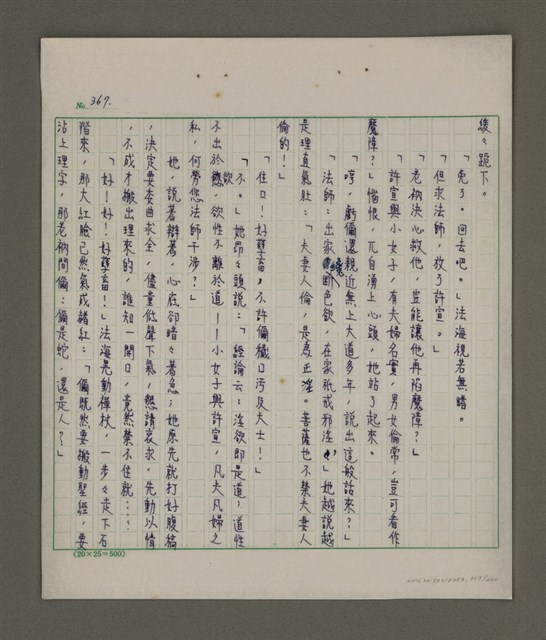 No. 367.
緩々跪下。
「免了。回去吧。」法海視若無睹。
「但求法師，放了許宣。」
「老衲決心救他，豈能讓他再陷魔障？」
「許宣與小女子，有夫婦名實，男女倫常，豈可看作
魔障？」惱恨，兀自湧上心頭，她站了起來。
「哼，虧偏還親近無上大道多年，說出這般話來？」
「法師：出家纔斷色欲，在家祇戒邪淫，」她越說越
是理直氣壯：「夫妻人倫，是為正淫。菩薩也不禁夫妻人
倫的！」
「住口！好孽畜，不許偏穢口污及大士！」
「不。」她昂々頭說：「經論云：淫欲即是道，道性
不出於欲，欲性不離於道——小女子與許宣，凡夫凡婦之
私，何勞您法師干涉？」
她，說著辯著，心底卻暗々著急；她原先就打好腹稿
，決定要委曲求全，儘量低聲下氣，懇請哀求，先動以情
，不成才搬出理來的，誰知一開口，竟然禁不住就……，
「好！好！好孽畜！」法海晃動禪杖，一步々走下石
階來，那大紅臉已然氣成赭紅：「偏既然要搬動聖經，要
沾上理字，那老衲問偏：偏是蛇，還是人？！」
(20×25=500)